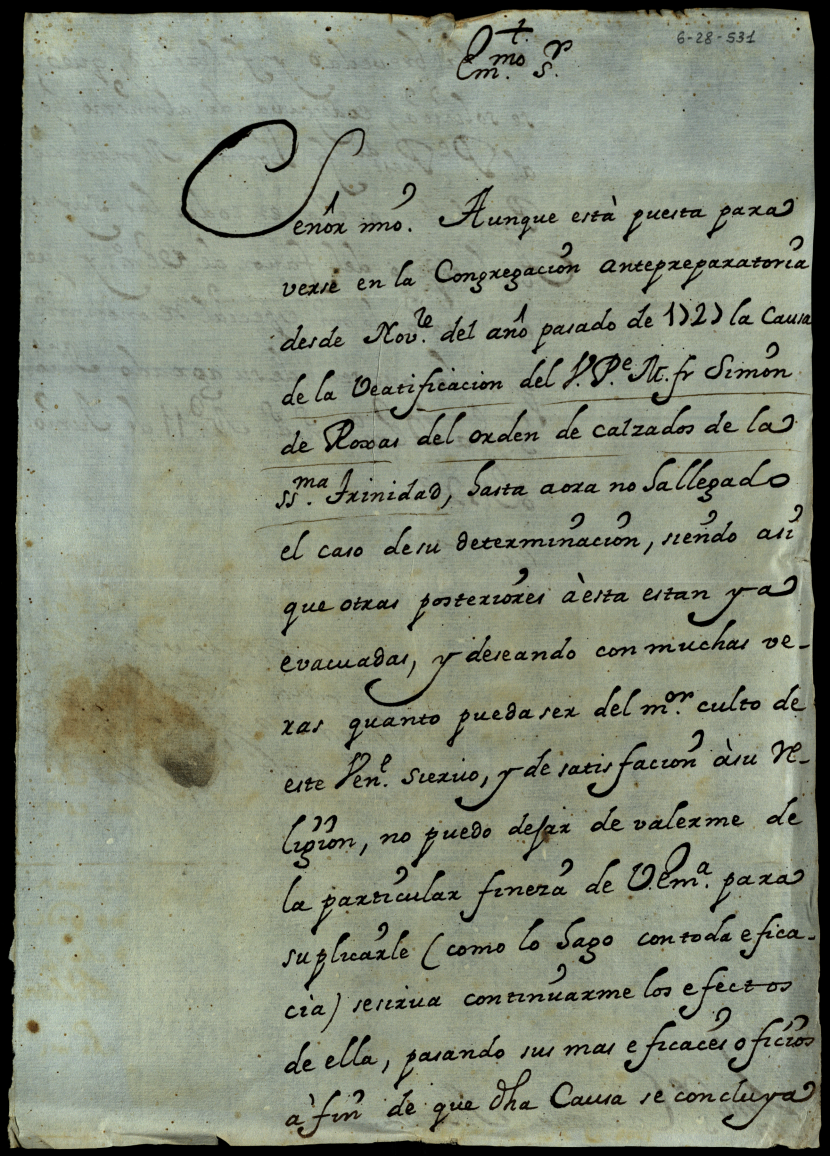 6-28-531
+
Em.mo S.r
Señor mio. Aunque està puesta para
verse en la Congregacion antepreparatoria
desde Nov.re del año pasado de 1727 la Causa
de la Veatificacion del V. P.e M. fr Simon
de Roxas del orden de calzados de la
ss.ma Trinidad, hasta aora no ha llegado
el caso de su determinacion, siendo asi
que otras posteriores à esta estan ya
evacuadas, y deseando con muchas ve-
ras quanto pueda ser del m.or culto de
este Ven.e Siervo, y de satisfacion à su Re-
ligion, no puedo dejar de valerme de
la particular fineza de V. Em.a para
suplicarle (como lo hago con toda efica-
cia) se sirva continuarme los efectos
de ella, pasando sus mas eficaces oficios
à fin de que dha Causa se concluya